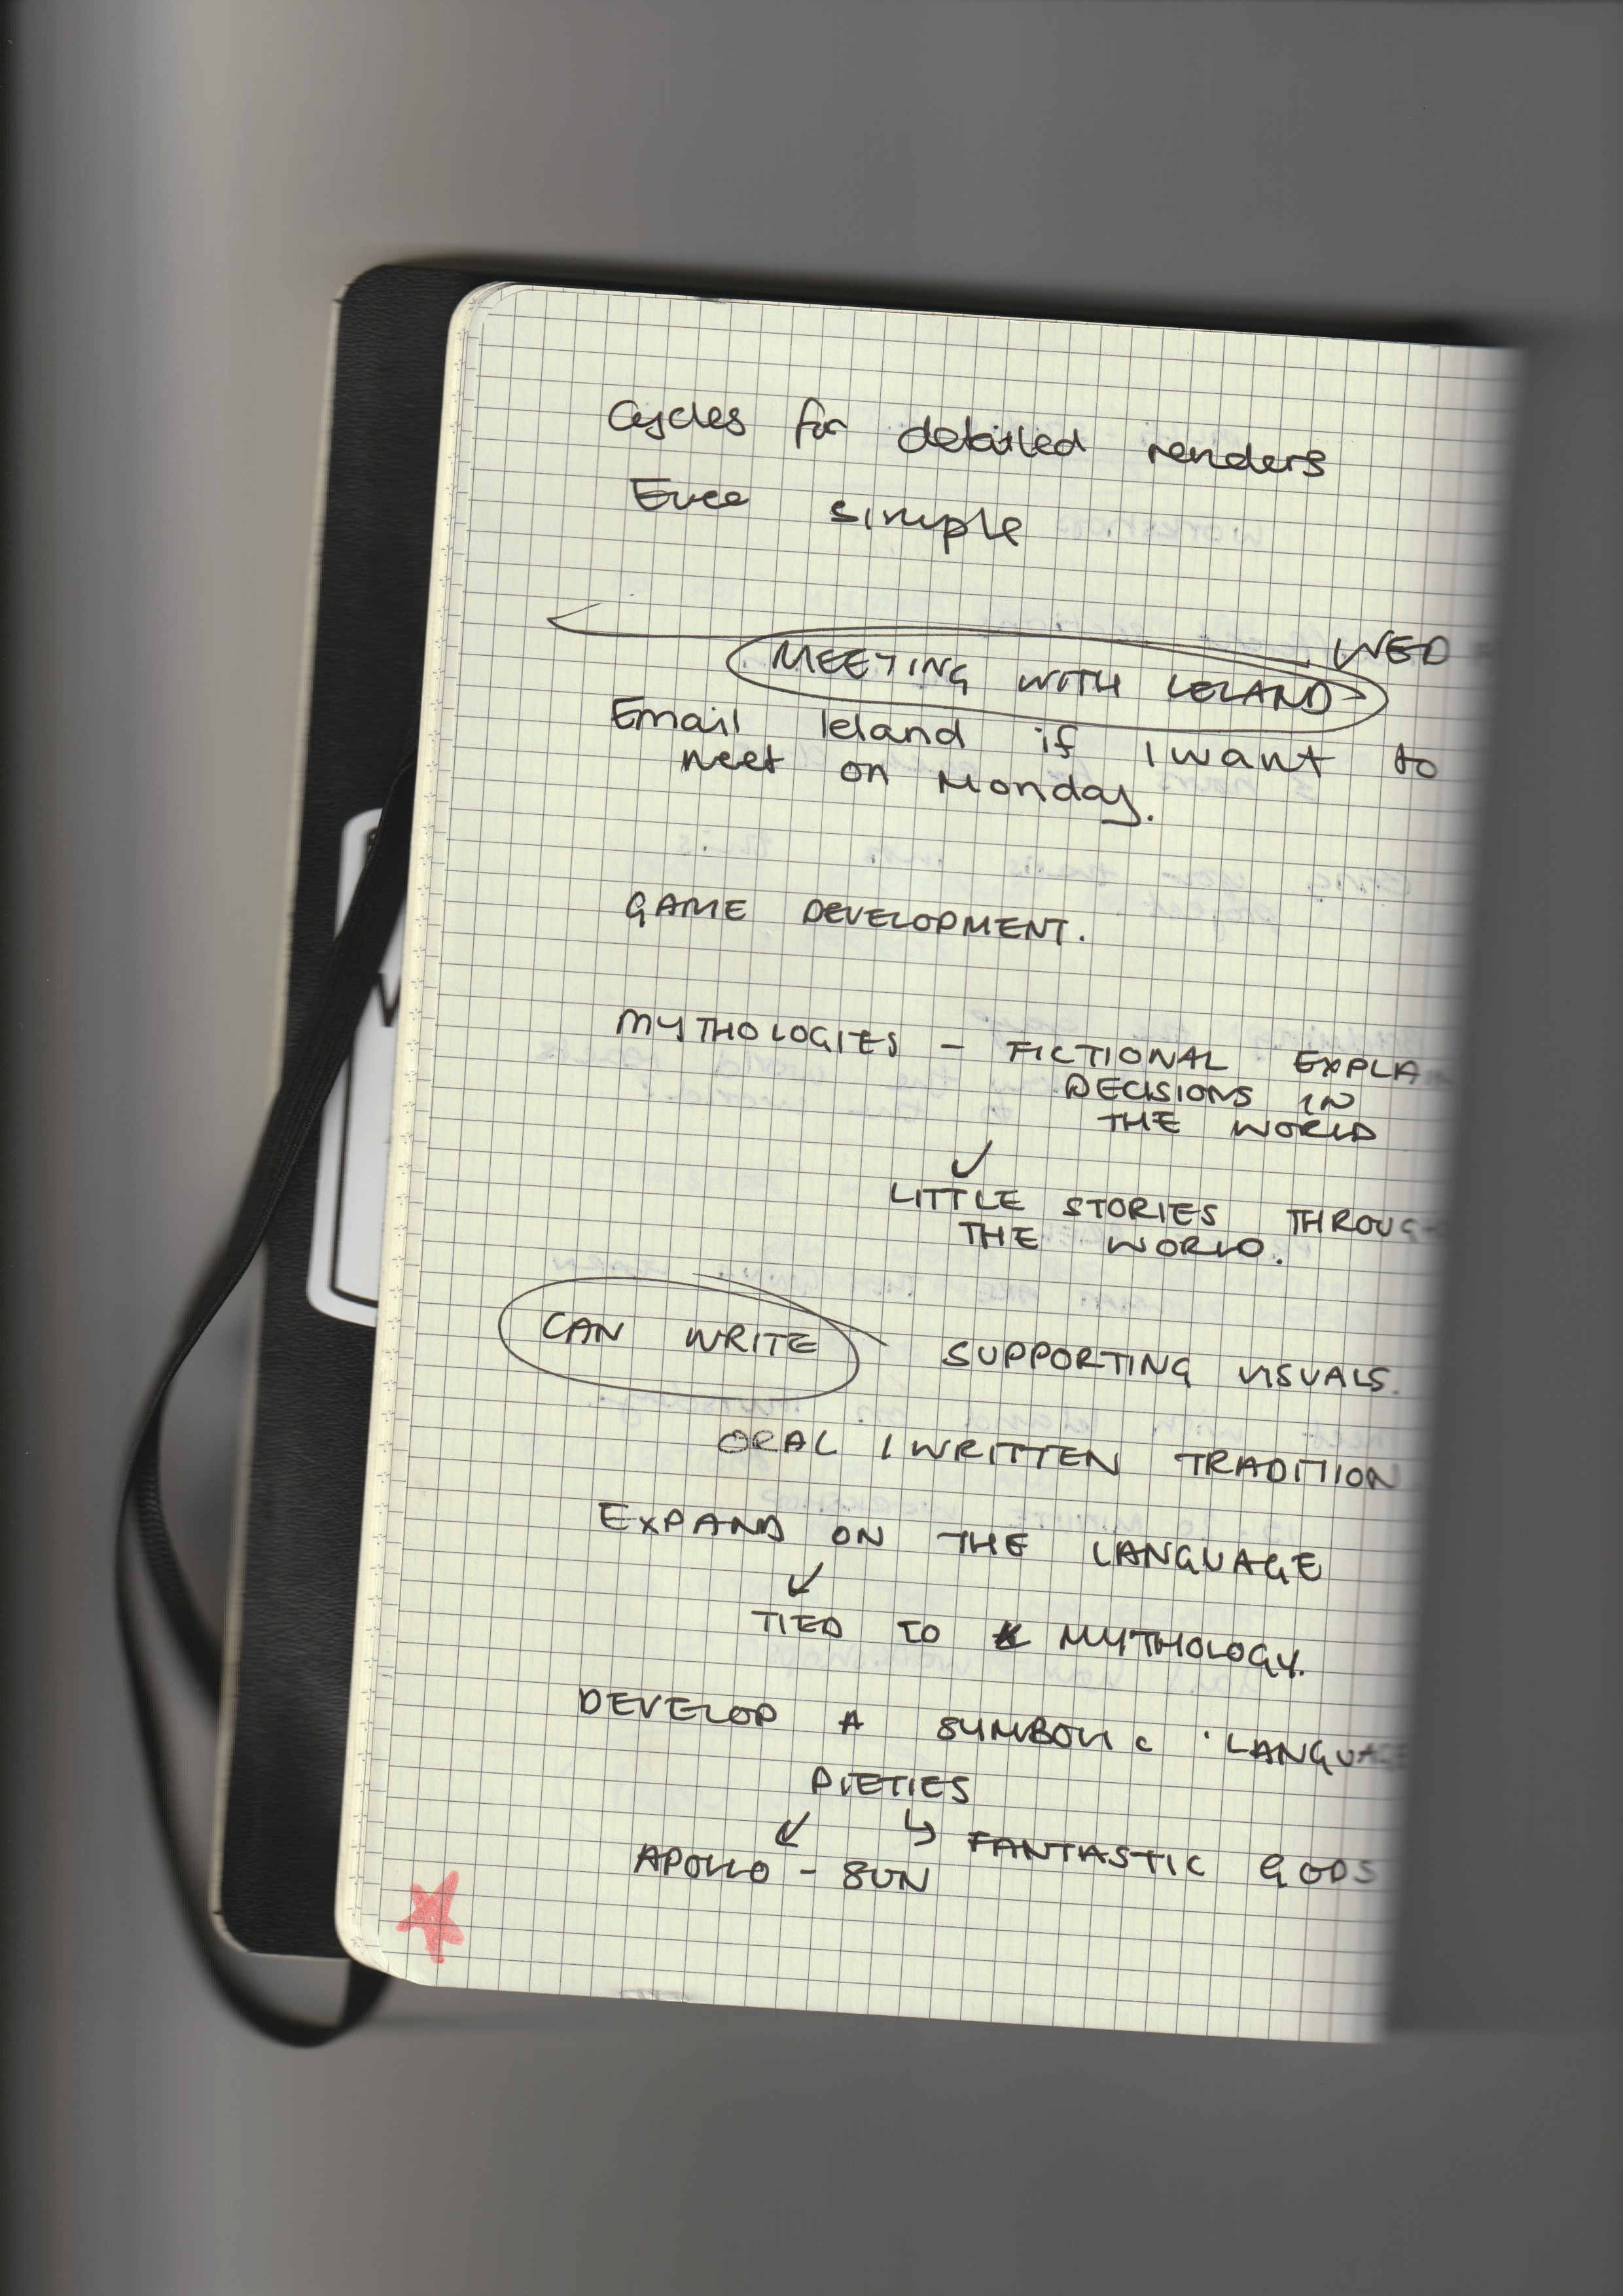 Cycles for detailed renders
Evee simple
WED
MEETING WITH LELAND
Email leland if I want to
meet on Monday.
GAME DEVELOPMENT.
MYTHOLOGIES – FICTIONAL EXPLA
DECISIONS IN
THE WORLD
↙
LITTLE STORIES THROUG
THE WORLD.
CAN WRITE SUPPORTING VISUALS.
ORAL / WRITTEN TRADITION
EXPAND ON THE LANGUAGE
↙
TIED TO MYTHOLOGY.
DEVELOP A SYMBOLIC LANGUAGE
DIETIES
↙ ↳ FANTASTIC GODS
APOLLO – SUN